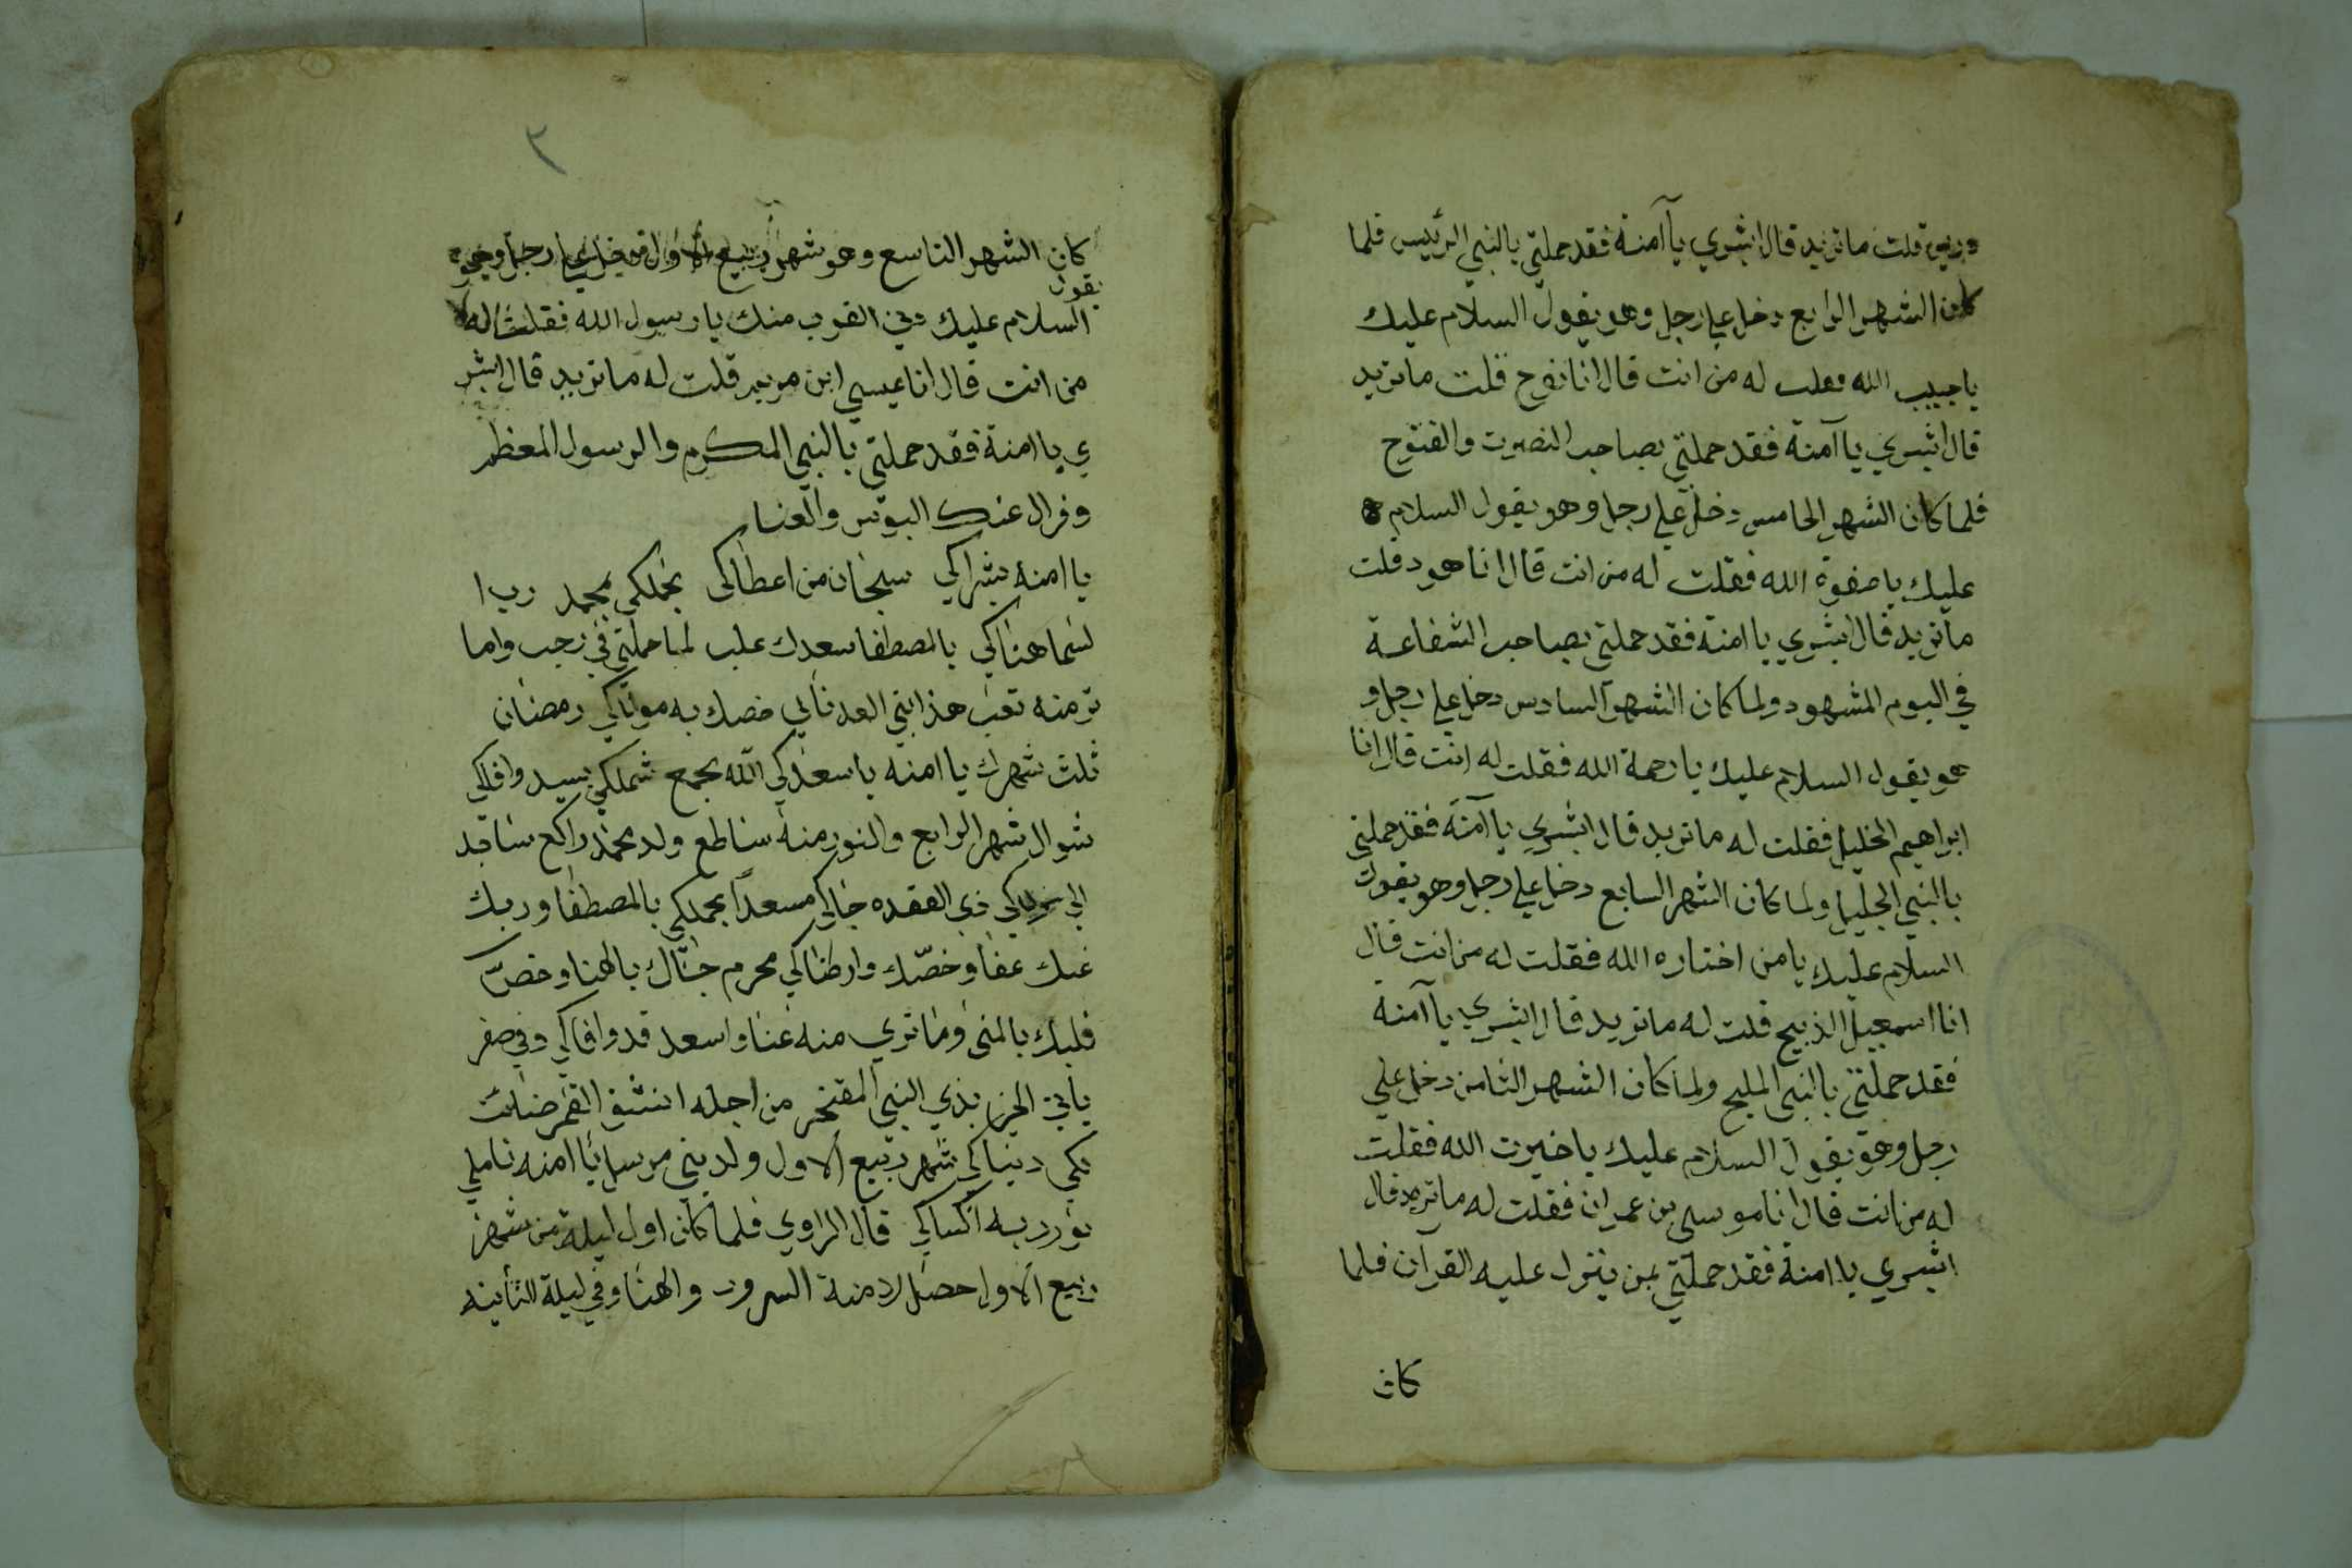 قلت ماتريد قال ابشري يا آمنة فقد حملتي بالنبي الرئيس فلما
كان الشهر الرابع دخل علي رجل وهو يقول السلام عليك
يا حبيب الله فقلت له من انت قال انا نوح قلت ماتريد
قال ابشري يا آمنة فقد حملتي بصاحب النصرت والفتوح
فلما كان الشهر الخامس دخل علي رجل وهو يقول السلام
عليك يا صفوة الله فقلت له من انت قال انا هود قلت
ماتريد قال ابشري يا امنة فقد حملتي بصاحب الشفاعة
في اليوم المشهود ولما كان الشهر السادس دخل علي رجل و
هو يقول السلام عليك يا رحمة الله فقلت له انت قال انا
ابراهيم الخليل فقلت له ماتريد قال ابشري يا آمنة فقد حملتي
بالنبي الجليل ولما كان الشهر السابع دخل علي رجل وهو يقول
السلام عليك يا من اختاره الله فقلت له من انت قال
انا اسمعيل الذبيح قلت له ماتريد قال ابشري يا آمنة
فقد حملتي بالنبي المليح ولما كان الشهر الثامن دخل علي
رجل وهو يقول السلام عليك يا خيرت الله فقلت
له من انت قال انا موسى بن عمران فقلت له ماتريد قال
ابشري يا امنة فقد حملتي بمن ينزل عليه القرآن فلما
كان
٢
كان الشهر التاسع وهو شهر ربيع الاول دخل علي رجل وهو
يقول
السلام عليك دني القرب منك يا رسول الله فقلت له
من انت قال انا عيسى ابن مريم قلت له ماتريد قال ابشر
ي يا امنة فقد حملتي بالنبي المكرم والرسول المعظم
وزال عنك البوس والعنا
يا امنه بشراكي سبحان من اعطاكى بحملكي بمحمد رب ا
لسما هناكي بالمصطفا سعدك غلب لما حملتي في رجب وما
تر منه تعب هذا نبي العدناني خصك به مولاكي رمضان
ثلث شهرك يا امنه يا سعدكي الله يجمع شملكي بسيد وافاكي
شوال شهر الرابع والنور منه ساطع ولد محمد راكع ساجد
الي مولاكي ذي القعده جاكي مسعداً بحملكي بالمصطفا وربك
عنك عفا وخصّك وارضاكي محرم جالك بالهنا وخصّ
قلبك بالمنى وما تري منه عنا واسعد قد وافاكي وفي صفر
ياتي الخبر بذي النبي المفتخر من اجله انشق القمر ضائت
بكي دنياكي شهر ربيع الاول ولد نبي مرسل يا امنه تاملي
نور ربه اكساكي قال الراوي فلما كان اول ليلة من شهر
ربيع الاول حصل لامنة السرور والهنا وفي ليلة الثانيه